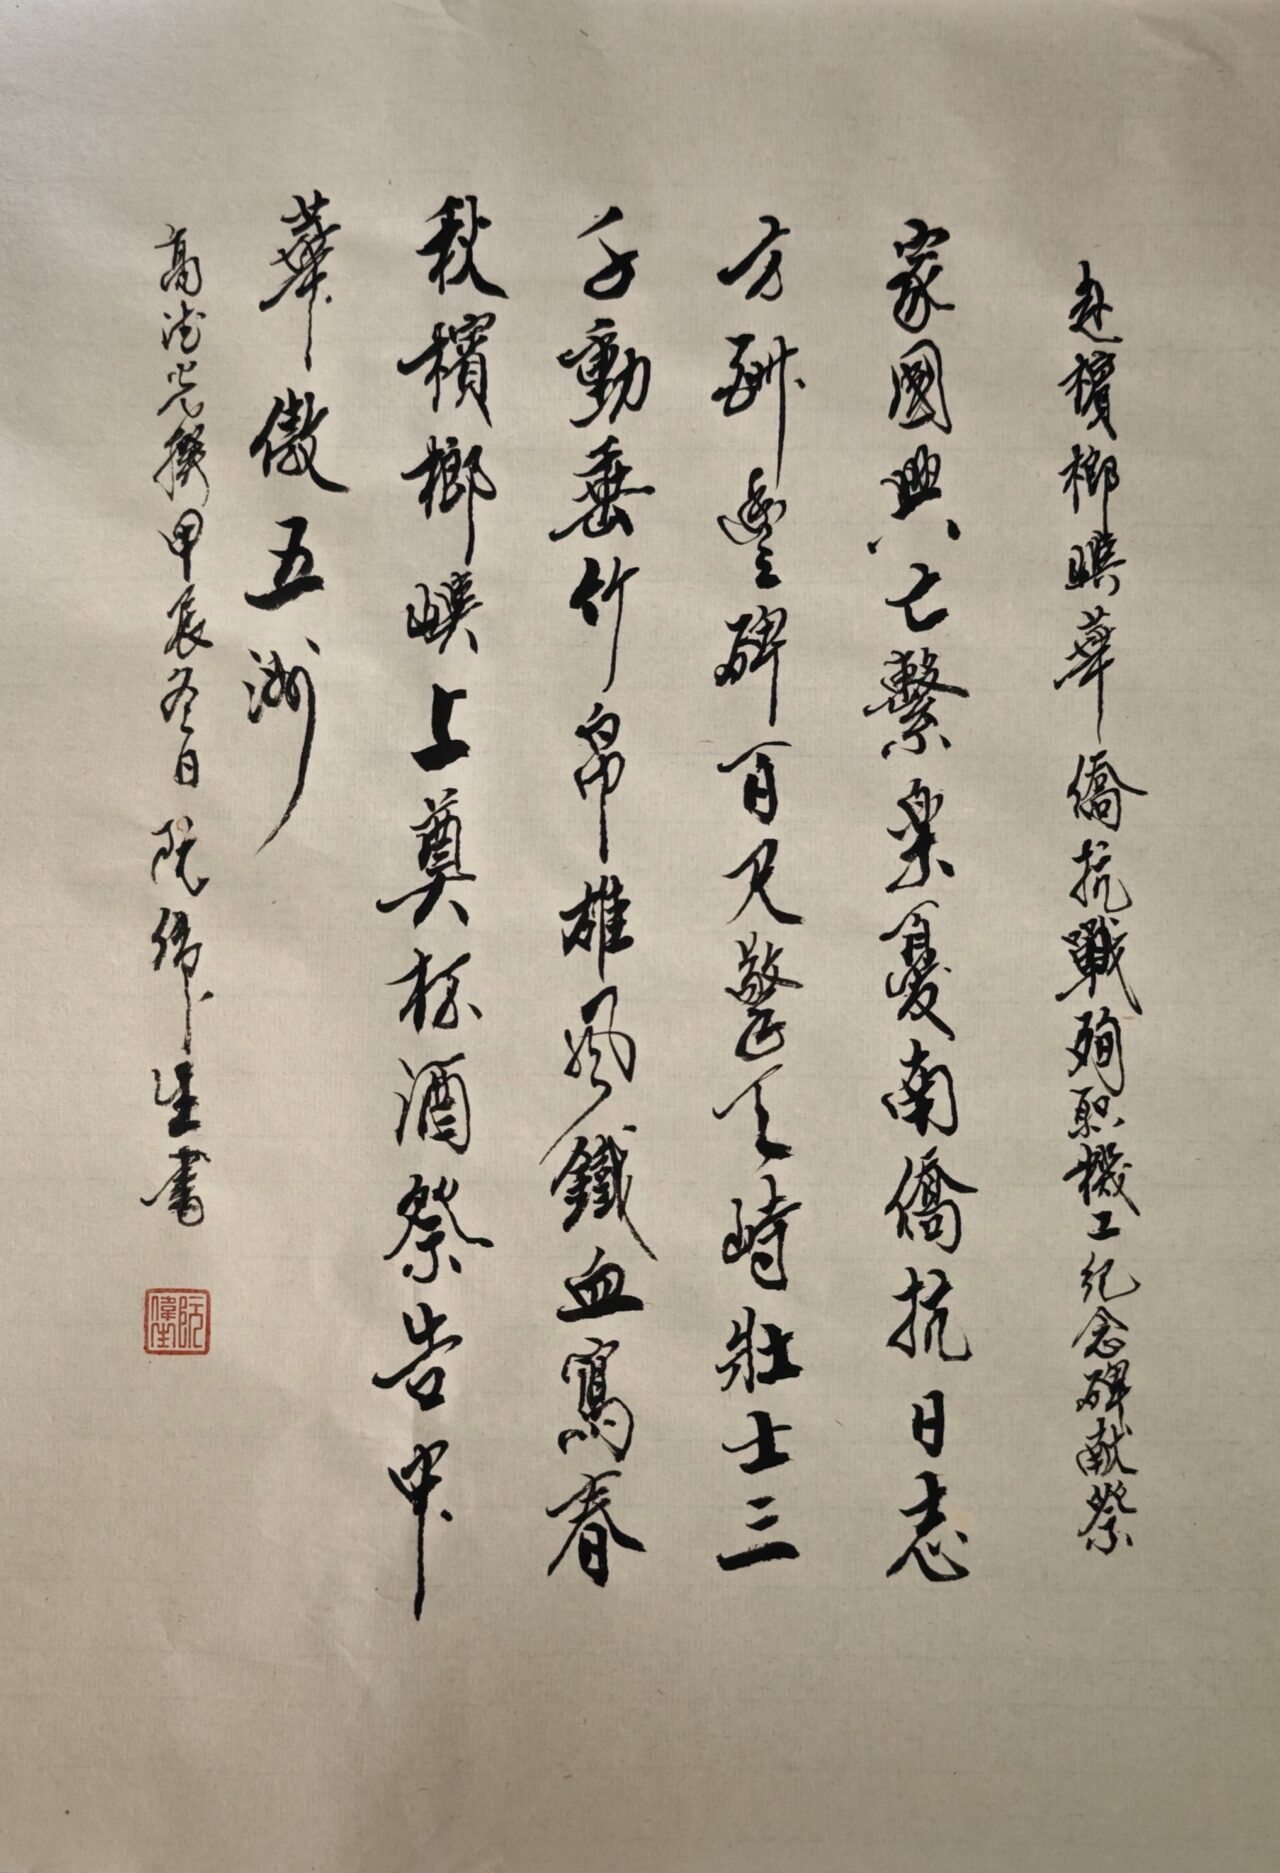 赴檳榔嶼華僑抗戰殉职機工纪念碑献祭
家國興亡繫樂憂南僑抗日志
方酬豐碑百尺驚天峙壯士三
千動垂竹帛雄風鐵血寫春
秋檳榔嶼上奠杯酒祭告中
華傲五洲
高德光撰甲辰冬日阮伟生書
阮偉生